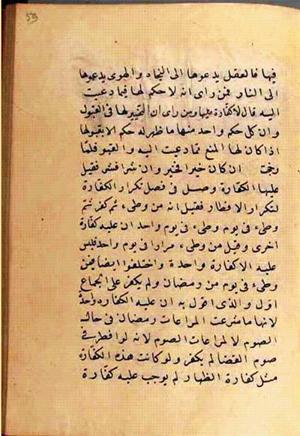 فيها فالعقل يدعوها الى النجاة والهوى يدعوها
الى النار فمن راى انه لا حكم لها فيما دعيت
اليه قال لا كفارة عليها ومن راى ان التخيير لها في القبول
وان كل حكم واحد منهما ما ظهر له حكم الا بقبولها
اذا كان لها المنع مما دعيت اليه والقبول فلما
رجحت ان كان خيرا فخير وان شرا فشر فقيل
عليها الكفارة وصل في فصل تكرار الكفارة
لتكرار الافطار فقيل انه من وطئ ثم كفر ثم
وطئ في يوم وطئ في يوم واحد ان عليه كفارة
اخرى وقيل من وطئ مرارا في يوم واحد فليس
عليه الا كفارة واحدة واختلفوا ايضا فيمن
وطئ في يوم من رمضان ولم يكفر حتى جامع
اقول والذي اقول به ان عليه الكفارة واحدة
لانها ما شرعت الا لمراعات رمضان في حال
الصوم لا لمراعات الصوم لانه لو افطر في
صوم القضا لم يكفر ولو كانت هذه الكفارة
مثل كفارة الظهار ولم يوجب عليه كفارة